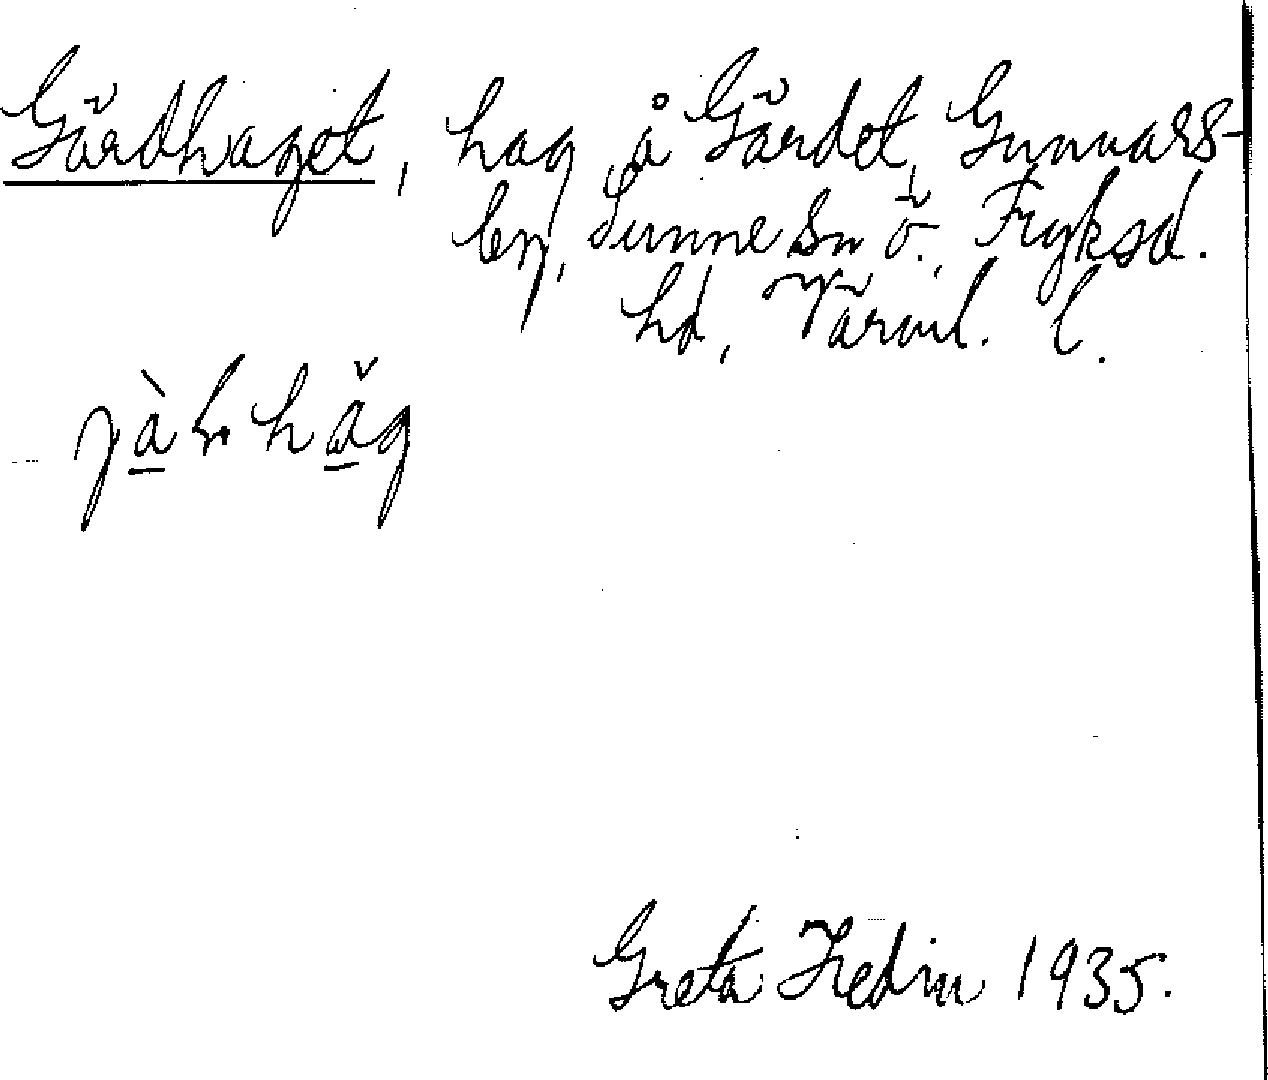 Gärdhaget, hag å Gärdet, Gunnars-
by, Sunne sn ö., Fryksd.
hd, Värml. l.
Greta Hedin 1935.